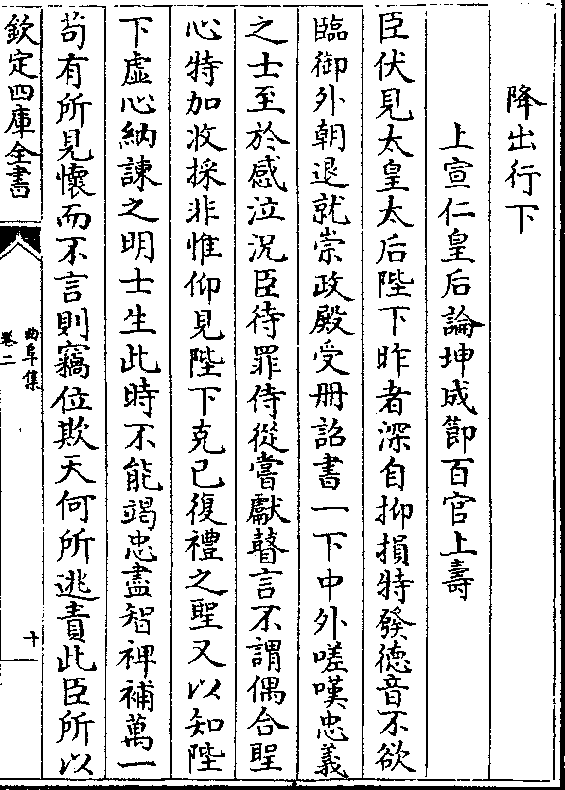 降出行下
上宣仁皇后論坤成節百官上壽
臣伏見太皇太后陛下昨者深自抑損特發德音不欲
臨御外朝退就崇政殿受册詔書一下中外嗟嘆忠義
之士至於感泣況臣待罪侍從嘗獻瞽言不謂偶合聖
心特加收採非惟仰見陛下克己復禮之聖又以知陛
下虛心納諫之明士生此時不能竭忠盡智裨補萬一
苟有所見懷而不言則竊位欺天何所逃責此臣所以
欽定四庫全書
曲阜集
卷二
十